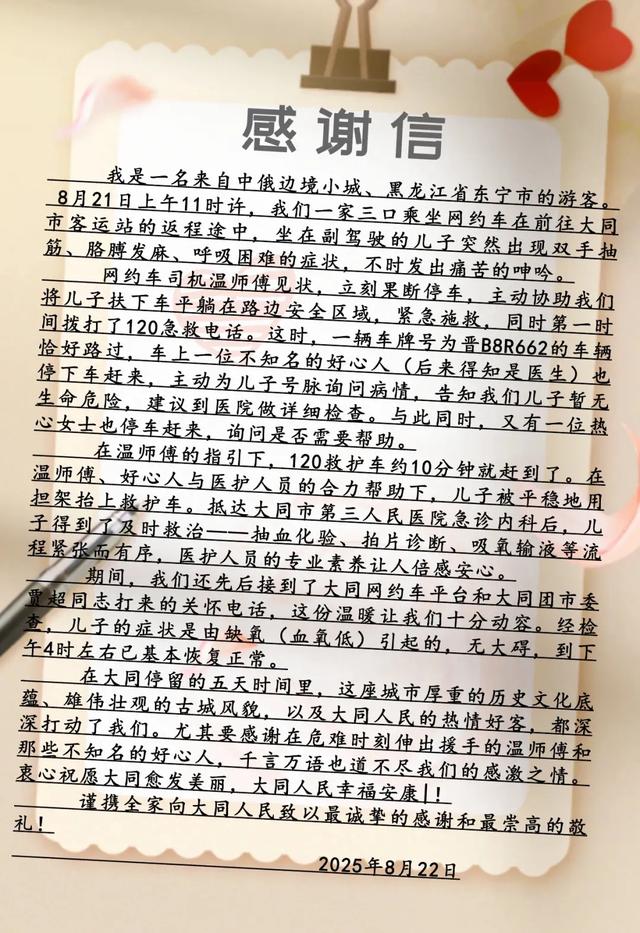 感谢信
我是一名来自中俄边境小城、黑龙江省东宁市的游客。
8月21日上午11时许，我们一家三口乘坐网约车在前往大同
市客运站的返程途中，坐在副驾驶的儿子突然出现双手抽
筋、胳膊发麻、呼吸困难的症状，不时发出痛苦的呻吟。
网约车司机温师傅见状，立刻果断停车，主动协助我们
将儿子扶下车平躺在路边安全区域，紧急施救，同时第一时
间拨打了120急救电话。这时，一辆车牌号为晋B8R662的车辆
恰好路过，车上一位不知名的好心人（后来得知是医生）也
停下车赶来，主动为儿子号脉询问病情，告知我们儿子暂无
生命危险，建议到医院做详细检查。与此同时，又有一位热
心女士也停车赶来，询问是否需要帮助。
在温师傅的指引下，120救护车约10分钟就赶到了。在
温师傅、好心人与医护人员的合力帮助下，儿子被平稳地用
担架抬上救护车。抵达大同市第三人民医院急诊内科后，儿
子得到了及时救治——抽血化验、拍片诊断、吸氧输液等流
程紧张而有序，医护人员的专业素养让人倍感安心。
期间，我们还先后接到了大同网约车平台和大同团市委
贾超同志打来的关怀电话，这份温暖让我们十分动容。经检
查，儿子的症状是由缺氧（血氧低）引起的，无大碍，到下
午4时左右已基本恢复正常。
在大同停留的五天时间里，这座城市厚重的历史文化底
蕴、雄伟壮观的古城风貌，以及大同人民的热情好客，都深
深打动了我们。尤其要感谢在危难时刻伸出援手的温师傅和
那些不知名的好心人，千言万语也道不尽我们的感激之情。
衷心祝愿大同愈发美丽，大同人民幸福安康|！
谨携全家向大同人民致以最诚挚的感谢和最崇高的敬
礼！
2025年8月22日